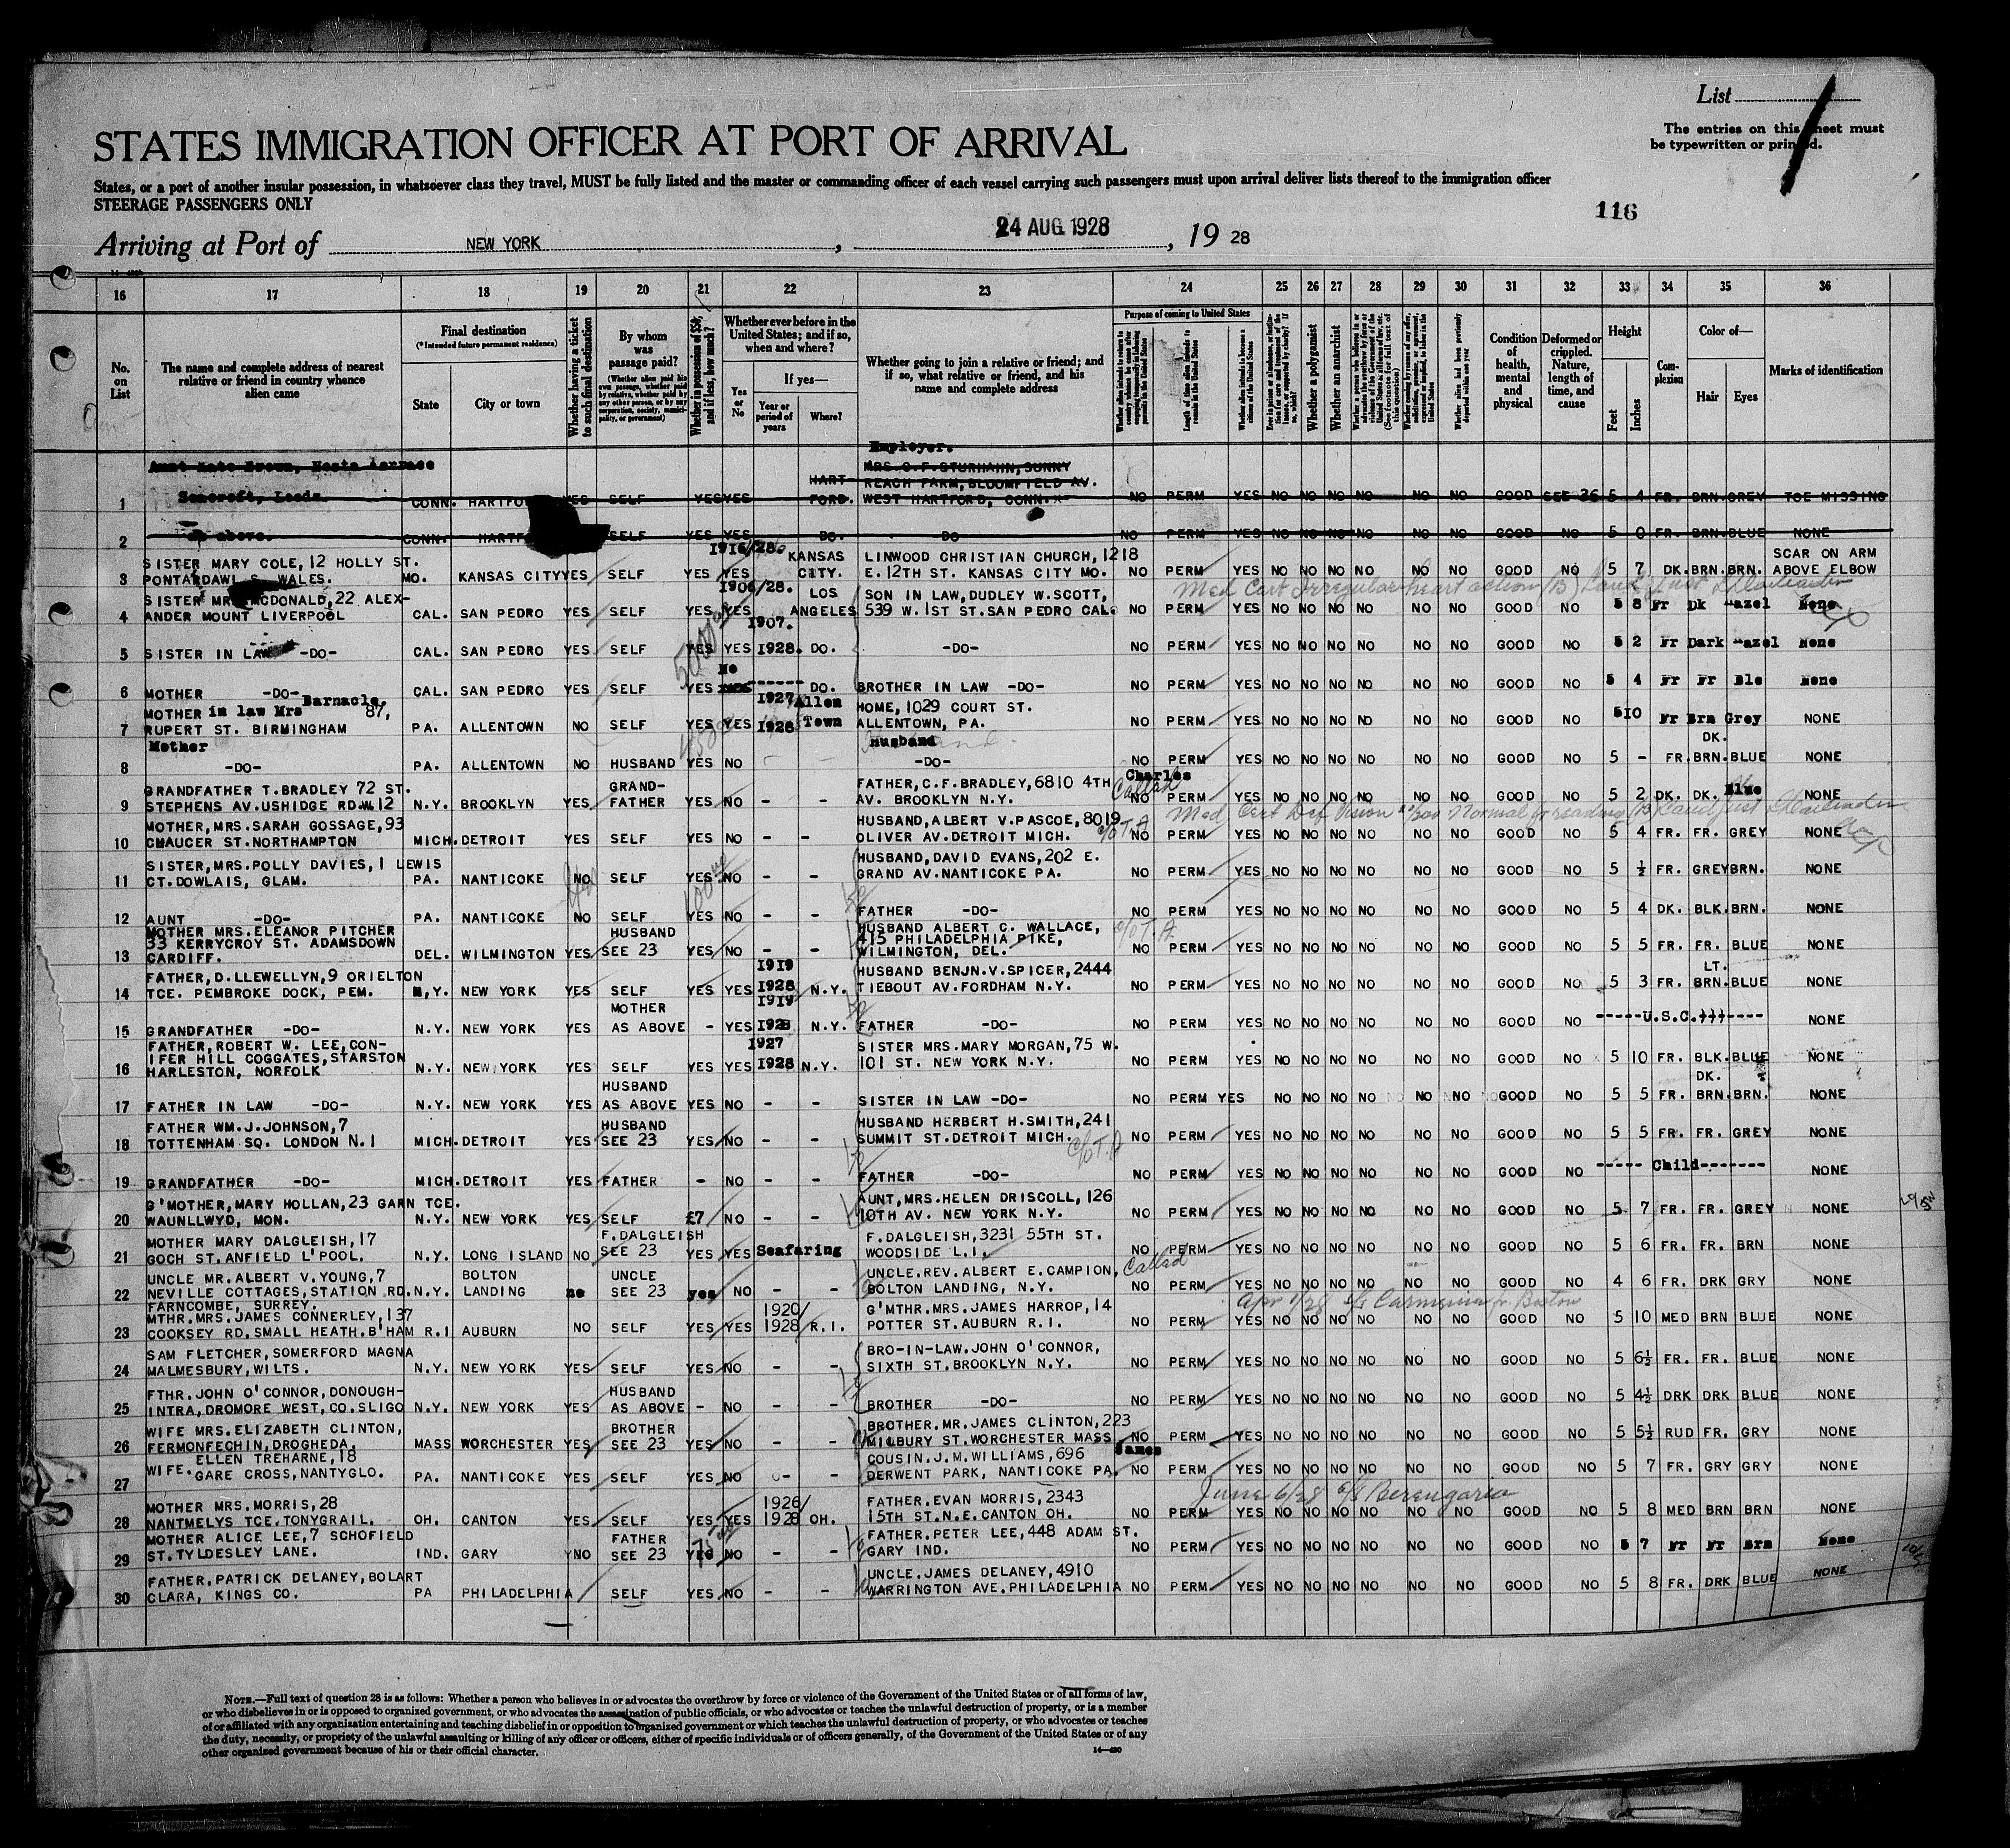 List
The entries on this sheet must
be typewritten or printed.
STATES IMMIGRATION OFFICER AT PORT OF ARRIVAL
States, or a port of another insular possession, in whatsoever class they travel, MUST be fully listed and the master or commanding officer of each vessel carrying such passengers must upon arrival deliver lists thereof to the immigration officer
STEERAGE PASSENGERS ONLY
116
Arriving at Port of NEW YORK , 24 AUG 1928 , 19 28
16 17 18 19 20 21 22 23 24 25 26 27 28 29 30 31 32 33 34 35 36
No. on List
The name and complete address of nearest relative or friend in country whence alien came
Final destination
(*Intended future permanent residence)
State
City or town
Whether having a ticket to such final destination
By whom was passage paid?
(Whether alien paid his own passage, whether paid by relative, whether paid by any other person, or by any corporation, society, municipality, or government)
Whether in possession of $50, and if less, how much?
Whether ever before in the United States; and if so, when and where?
Yes or No
If yes—
Year or period of years
Where?
Whether going to join a relative or friend; and if so, what relative or friend, and his name and complete address
Purpose of coming to United States
Length of time alien intends to remain in the United States
Whether alien intends to become a citizen of the United States
Whether a polygamist
Whether an anarchist
Condition of health, mental and physical
Deformed or crippled. Nature, length of time, and cause
Height
Feet
Inches
Complexion
Color of—
Hair
Eyes
Marks of identification
Employer.
Aunt Kate Brown, Hesta terrace MRS.C.F.STURHAHN,SUNNY
HART- REACH FARM,BLOOMFIELD AV.
1 Seacroft, Leeds. CONN. HARTFO YES SELF YES YES FORD. WEST HARTFORD, CONN. NO PERM YES NO NO NO NO NO NO GOOD SEE 36 5 4 FR. BRN. GREY TOE MISSING
2 above. CONN. HARTF SELF YES YES DO. DO NO PERM YES NO NO NO NO NO NO GOOD NO 5 0 FR. BRN. BLUE NONE
SISTER MARY COLE,12 HOLLY ST. 1916/28. KANSAS LINWOOD CHRISTIAN CHURCH,1218 SCAR ON ARM
3 PONTARDAWL S. WALES. MO. KANSAS CITY YES SELF YES YES CITY. E.12TH ST. KANSAS CITY MO. NO PERM YES NO NO NO NO NO NO GOOD NO 5 7 DK. BRN. BRN. ABOVE ELBOW
Med Cert Irregular heart action
SISTER MRS MCDONALD,22 ALEX- 1906/28. LOS SON IN LAW,DUDLEY W.SCOTT,
4 ANDER MOUNT LIVERPOOL CAL. SAN PEDRO YES SELF YES YES ANGELES 539 W.1ST ST.SAN PEDRO CAL. NO PERM YES NO NO NO NO NO NO GOOD NO 5 8 Fr Dk Hazel None
1907.
5 SISTER IN LAW -DO- CAL. SAN PEDRO YES SELF YES YES 1928. DO. -DO- NO PERM YES NO NO NO NO NO NO GOOD NO 5 2 Fr Dark Hazel None
No
6 MOTHER -DO- CAL. SAN PEDRO YES SELF YES ------ DO. BROTHER IN LAW -DO- NO PERM YES NO NO NO NO NO NO GOOD NO 5 4 Fr Fr Ble None
MOTHER in law Mrs Barnacle. 87, 1927 Allen HOME,1029 COURT ST.
7 RUPERT ST. BIRMINGHAM PA. ALLENTOWN NO SELF YES YES 1928 Town ALLENTOWN, PA. NO PERM YES NO NO NO NO NO NO GOOD NO 5 10 Fr Brn Grey NONE
Mother Husband DK.
8 -DO- PA. ALLENTOWN NO HUSBAND YES NO - - -DO- NO PERM YES NO NO NO NO NO NO GOOD NO 5 - FR. BRN. BLUE NONE
GRANDFATHER T.BRADLEY 72 ST. GRAND- FATHER,C.F.BRADLEY,6810 4TH Charles
9 STEPHENS AV.USHIDGE RD.W.12 N.Y. BROOKLYN YES FATHER YES NO - - AV. BROOKLYN N.Y. Called NO PERM YES NO NO NO NO NO NO GOOD NO 5 2 DK. DK. Blue NONE
Med Cert Def Vision 20/200 Normal for reading
MOTHER,MRS.SARAH GOSSAGE,93 HUSBAND,ALBERT V.PASCOE,8019
10 CHAUCER ST.NORTHAMPTON MICH. DETROIT YES SELF YES NO - - OLIVER AV.DETROIT MICH. c/o T.A NO PERM YES NO NO NO NO NO NO GOOD NO 5 4 FR. FR. GREY NONE
SISTER,MRS.POLLY DAVIES,1 LEWIS HUSBAND,DAVID EVANS,202 E.
11 CT.DOWLAIS, GLAM. PA. NANTICOKE NO yes SELF YES 100 NO - - GRAND AV.NANTICOKE PA. NO PERM YES NO NO NO NO NO NO GOOD NO 5 ½ FR. GREY BRN. NONE
12 AUNT -DO- PA. NANTICOKE NO SELF YES NO - - FATHER -DO- NO PERM YES NO NO NO NO NO NO GOOD NO 5 4 DK. BLK. BRN. NONE
MOTHER MRS.ELEANOR PITCHER HUSBAND HUSBAND ALBERT C. WALLACE,
33 KERRYCROY ST. ADAMSDOWN 415 PHILADELPHIA PIKE, c/o T.A.
13 CARDIFF. DEL. WILMINGTON YES SEE 23 YES NO - - WILMINGTON, DEL. NO PERM YES NO NO NO NO NO NO GOOD NO 5 5 FR. FR. BLUE NONE
FATHER,D.LLEWELLYN,9 ORIELTON 1919 HUSBAND BENJN.V.SPICER,2444 LT.
14 TCE. PEMBROKE DOCK, PEM. N,Y. NEW YORK YES SELF YES YES 1928 N.Y. TIEBOUT AV.FORDHAM N.Y. NO PERM YES NO NO NO NO NO NO GOOD NO 5 3 FR. BRN. BLUE NONE
MOTHER 1919
15 GRANDFATHER -DO- N.Y. NEW YORK YES AS ABOVE - YES 1928 N.Y. FATHER -DO- NO PERM YES NO NO NO NO NO NO GOOD NO -----U.S.C.)))---- NONE
FATHER,ROBERT W. LEE,CON- 1927 SISTER MRS.MARY MORGAN,75 W.
IFER HILL COGGATES,STARSTON
16 HARLESTON, NORFOLK N.Y. NEW YORK YES SELF YES YES 1928 N.Y. 101 ST. NEW YORK N.Y. NO PERM YES NO NO NO NO NO NO GOOD NO 5 10 FR. BLK. BLUE NONE
HUSBAND DK.
17 FATHER IN LAW -DO- N.Y. NEW YORK YES AS ABOVE YES NO - - SISTER IN LAW -DO- NO PERM YES NO NO NO NO NO NO GOOD NO 5 5 FR. BRN. BRN. NONE
FATHER WM.J.JOHNSON,7 HUSBAND HUSBAND HERBERT H.SMITH,241
18 TOTTENHAM SQ. LONDON N.1 MICH. DETROIT YES SEE 23 YES NO - - SUMMIT ST.DETROIT MICH. c/o T.A NO PERM YES NO NO NO NO NO NO GOOD NO 5 5 FR. FR. GREY NONE
19 GRANDFATHER -DO- MICH. DETROIT YES FATHER - NO - - FATHER -DO- NO PERM YES NO NO NO NO NO NO GOOD NO ----- Child------- NONE
G'MOTHER,MARY HOLLAN,23 GARN TCE. AUNT,MRS.HELEN DRISCOLL, 126
20 WAUNLLWYD, MON. N.Y. NEW YORK YES SELF £7 NO - - 10TH AV. NEW YORK N.Y. NO PERM YES NO NO NO NO NO NO GOOD NO 5 7 FR. FR. GREY NONE
MOTHER MARY DALGLEISH,17 F.DALGLEISH F.DALGLEISH,3231 55TH ST.
21 GOCH ST.ANFIELD L'POOL. N.Y. LONG ISLAND NO SEE 23 YES YES Seafaring WOODSIDE L.I. NO PERM YES NO NO NO NO NO NO GOOD NO 5 6 FR. FR. BRN NONE
UNCLE MR.ALBERT V.YOUNG,7 BOLTON UNCLE UNCLE.REV.ALBERT E.CAMPION, Called
22 NEVILLE COTTAGES,STATION RD. N.Y. LANDING no SEE 23 yes NO - - BOLTON LANDING, N.Y. NO PERM YES NO NO NO NO NO NO GOOD NO 4 6 FR. DRK GRY NONE
FARNCOMBE, SURREY.
Apr 1/28 s/s Carmania fr Boston
MTHR.MRS.JAMES CONNERLEY,137 1920/ G'MTHR.MRS.JAMES HARROP,14
23 COOKSEY RD.SMALL HEATH.B'HAM R.I AUBURN NO SELF YES YES 1928 R.I. POTTER ST.AUBURN R.I. YES NO NO NO NO NO NO GOOD NO 5 10 MED BRN BLUE NONE
SAM FLETCHER,SOMERFORD MAGNA BRO-IN-LAW.JOHN O'CONNOR,
24 MALMESBURY,WILTS. N.Y. NEW YORK YES SELF YES NO - - SIXTH ST.BROOKLYN N.Y. NO PERM YES NO NO NO NO NO NO GOOD NO 5 6½ FR. FR. BLUE NONE
FTHR.JOHN O'CONNOR,DONOUGH- HUSBAND
25 INTRA,DROMORE WEST,CO.SLIGO N.Y. NEW YORK YES AS ABOVE - NO - - BROTHER -DO- NO PERM YES NO NO NO NO NO NO GOOD NO 5 4½ DRK DRK BLUE NONE
WIFE MRS.ELIZABETH CLINTON, BROTHER BROTHER.MR.JAMES CLINTON,223
26 FERMONFECHIN,DROGHEDA. MASS WORCHESTER YES SEE 23 YES NO - - MILBURY ST.WORCHESTER MASS NO PERM YES NO NO NO NO NO NO GOOD NO 5 5½ RUD FR. GRY NONE
ELLEN TREHARNE,18 COUSIN.J.M.WILLIAMS,696 James
27 WIFE. GARE CROSS,NANTYGLO. PA. NANTICOKE YES SELF YES NO - - DERWENT PARK, NANTICOKE PA. NO PERM YES NO NO NO NO NO NO GOOD NO 5 7 FR. GRY GRY NONE
June 6/28 s/s Berengaria
MOTHER MRS.MORRIS,28 1926/ FATHER.EVAN MORRIS,2343
28 NANTMELYS TCE.TONYGRAIL. OH. CANTON YES SELF YES YES 1928 OH. 15TH ST.N.E.CANTON OH. NO PERM YES NO NO NO NO NO NO GOOD NO 5 8 MED BRN BRN NONE
MOTHER ALICE LEE,7 SCHOFIELD FATHER FATHER.PETER LEE,448 ADAM ST.
29 ST.TYLDESLEY LANE. IND. GARY NO SEE 23 YES NO - - GARY IND. NO PERM YES NO NO NO NO NO NO GOOD NO 5 7 Fr Fr Brn None
FATHER.PATRICK DELANEY,BOLART UNCLE.JAMES DELANEY,4910
30 CLARA, KINGS CO. PA PHILADELPHIA SELF YES NO - - WARRINGTON AVE.PHILADELPHIA NO PERM YES NO NO NO NO NO NO GOOD NO 5 8 FR. DRK BLUE NONE
NOTE.—Full text of question 28 is as follows: Whether a person who believes in or advocates the overthrow by force or violence of the Government of the United States or of all forms of law,
or who disbelieves in or is opposed to organized government, or who advocates the assassination of public officials, or who advocates or teaches the unlawful destruction of property, or is a member
of or affiliated with any organization entertaining and teaching disbelief in or opposition to organized government or which teaches the unlawful destruction of property, or who advocates or teaches
the duty, necessity, or propriety of the unlawful assaulting or killing of any officer or officers, either of specific individuals or of officers generally, of the Government of the United States or of any
other organized government because of his or their official character.
14—480